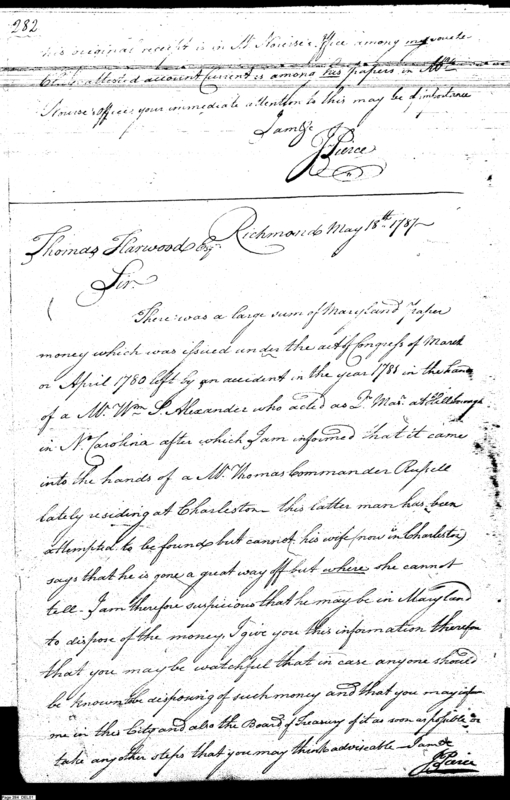 282
this original receipt is in Mr. Nourse's Office among my
attested account Current is among his papers in Mr.
Nourse's office; your immediate attention to this may be of importance
I am &c
J Pierce
Richmond May 18th. 1787
Thomas Harwood Esqr.
Sir,
There was a large sum of Maryland paper
money which was issued under the act of Congress of March
or April 1780 left by an accident in the year 1781 in the hands
of a Mr. Wm. S. Alexander who acted as Qr. Mar. at Hillsborough
in No. Carolina after which I am informed that it came
into the hands of a Mr. Thomas Commander Russell
lately residing at Charleston - this latter man has been
attempted to be found but cannot; his wife (now in Charleston)
says that he is gone a great way off but where she cannot
tell - I am therefore suspicious that he may be in Maryland
to dispose of the money, I give you this information therefore
that you may be watchful that in case anyone should
be known disposing of such money and that you may inform
me in this City and also the Board of Treasury of it as soon as possible or
take any other steps that you may think adviseable I am &c
J Pierce